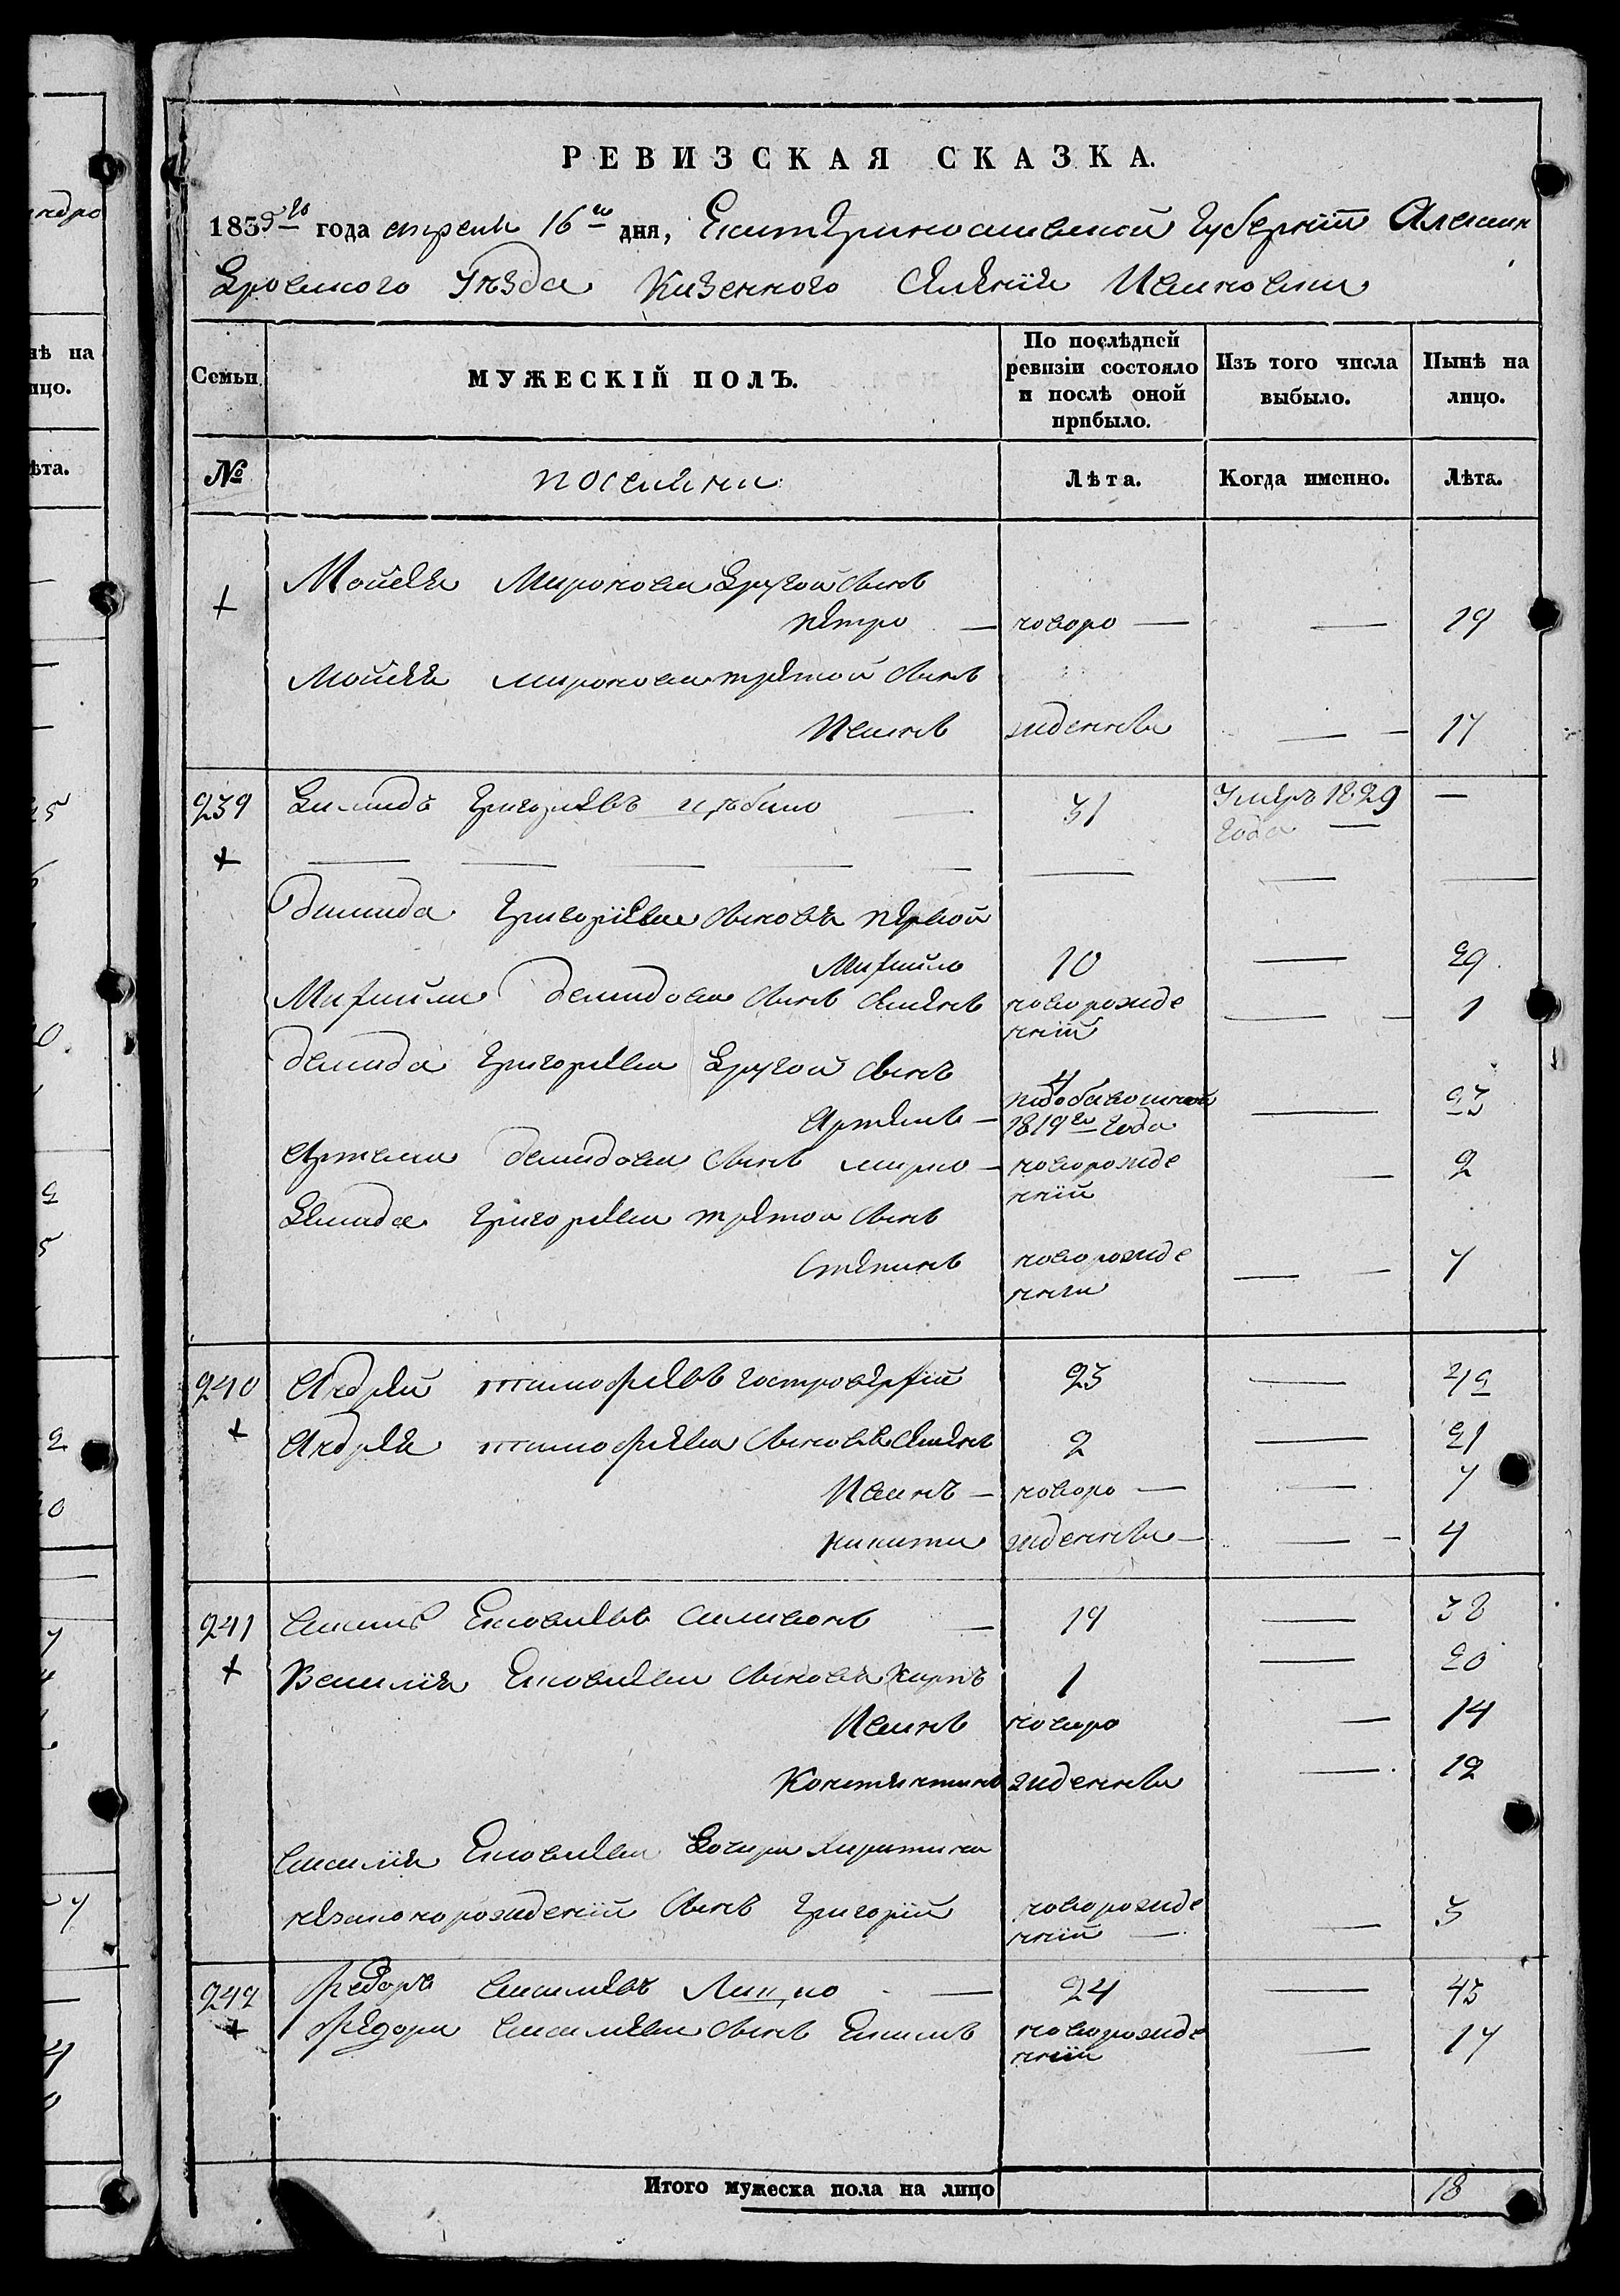 РЕВИЗСКАЯ СКАЗКА.
1835го года апреля 16го дня, Екатеринославской Губернiи Алексан
дровского Уѣзда Казенного Селенiя Ивановки
Семьи
МУЖЕСКIЙ ПОЛЪ.
По послѣдней ревизiи состояло и послѣ оной прибыло.
Изъ того числа выбыло.
Нынѣ на лицо.
№
поселяни
Лѣта.
Когда именно.
Лѣта.
+ Мойсея Миронова другой сынъ
Петро — новоро — — 19
Мойсея миронова третой сынъ
Иванъ жденныи — 17
239 Демидъ Григориевъ — 31 Умеръ 1829 —
года —
+
Демида Григорiева сыновя первой
Михайло 10 — 29
Михайлы демидова сынъ семенъ новорожде — 1
нный
демида Григориева другой сынъ
Артемъ — 4
1819го года — 23
Артема демидова сынъ марко — новорожде — 2
ннiй
Демида Григориева третой сынъ
Степанъ новорожде — 7
нни
240 Андрей тимофеевъ гостроверхiй 23 — 42
+ Андрея тимофеева сыновя Семенъ 2 — 21
Иванъ — новоро — — 7
никита жденныи — — 4
241 Василь Яковлевъ Саливонъ — 19 — 38
+ Василiя Яковлева сыновя карпъ 1 — 20
Иванъ новоро — 14
Константинъ жденныи — 12
Василiя Яковлева дочери Харитины
незаконорожденiй сынъ Григорiй новорожде — 3
ннiй —
242 Федоръ Василиевъ — 24 — 43
+ Федора Василиева сынъ новорожде — 17
ннiй
Итого мужеска пола на лицо 18